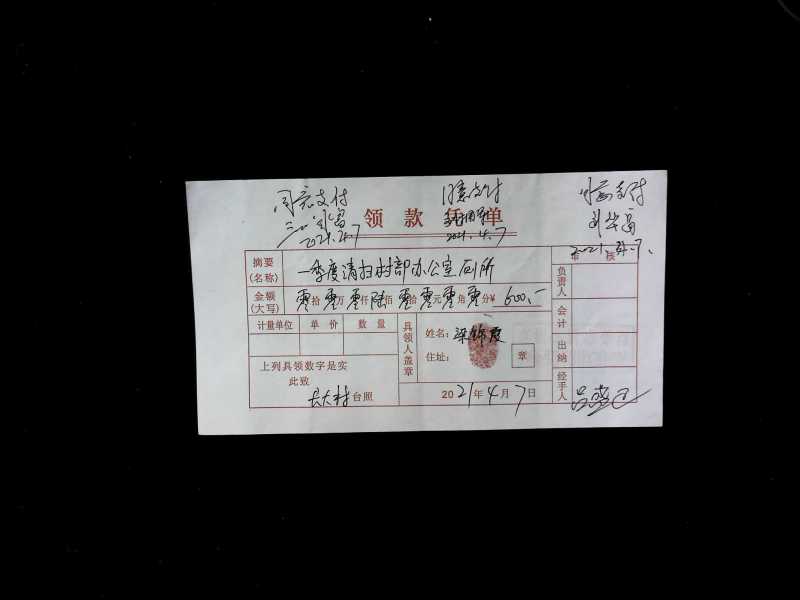 同意支付
同意支付
同意支付
2021.4.7
2021.4.7
2021.4.7.
领款凭单
摘要(名称) 一季度清扫村部办公室厕所
审核
金额(大写) 零拾零万零仟陆佰零拾零元零角零分¥600.-
计量单位 单价 数量
具领人盖章
姓名:梁锦霞
住址:
章
上列具领数字是实
此致
长大村台照
2021年4月7日
负责人
会计
出纳
经手人